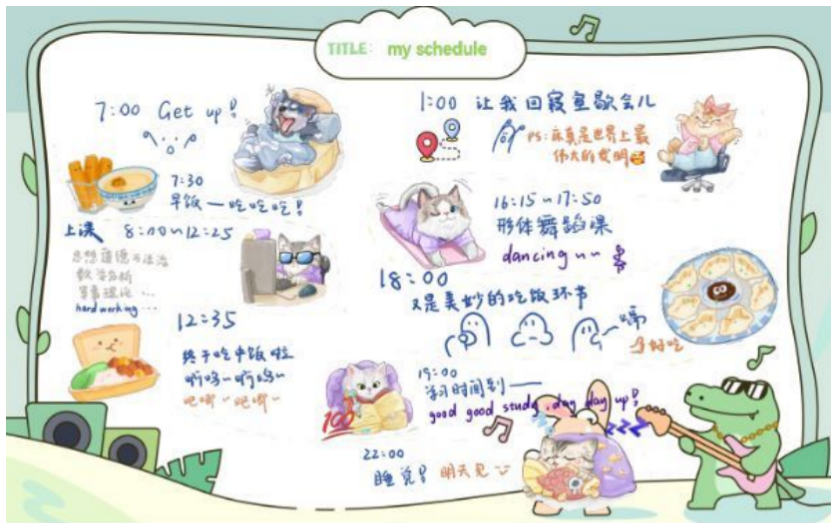 TITLE: my schedule
7:00 Get up!
7:30
早饭—吃吃吃!
上课 8:00~12:25
思想道德与法治
数学分析
军事理论...
hard working...
12:35
终于吃中饭啦
吧唧~吧唧~
1:00 让我回寝室歇会儿
PS:床真是世界上最
伟大的发明
16:15~17:50
形体舞蹈课
dancing~~
18:00
又是美妙的吃饭环节
~嗝
好吃
19:00
学习时间到——
good good study, day day up!
22:00
睡觉! 明天见
zzz
100